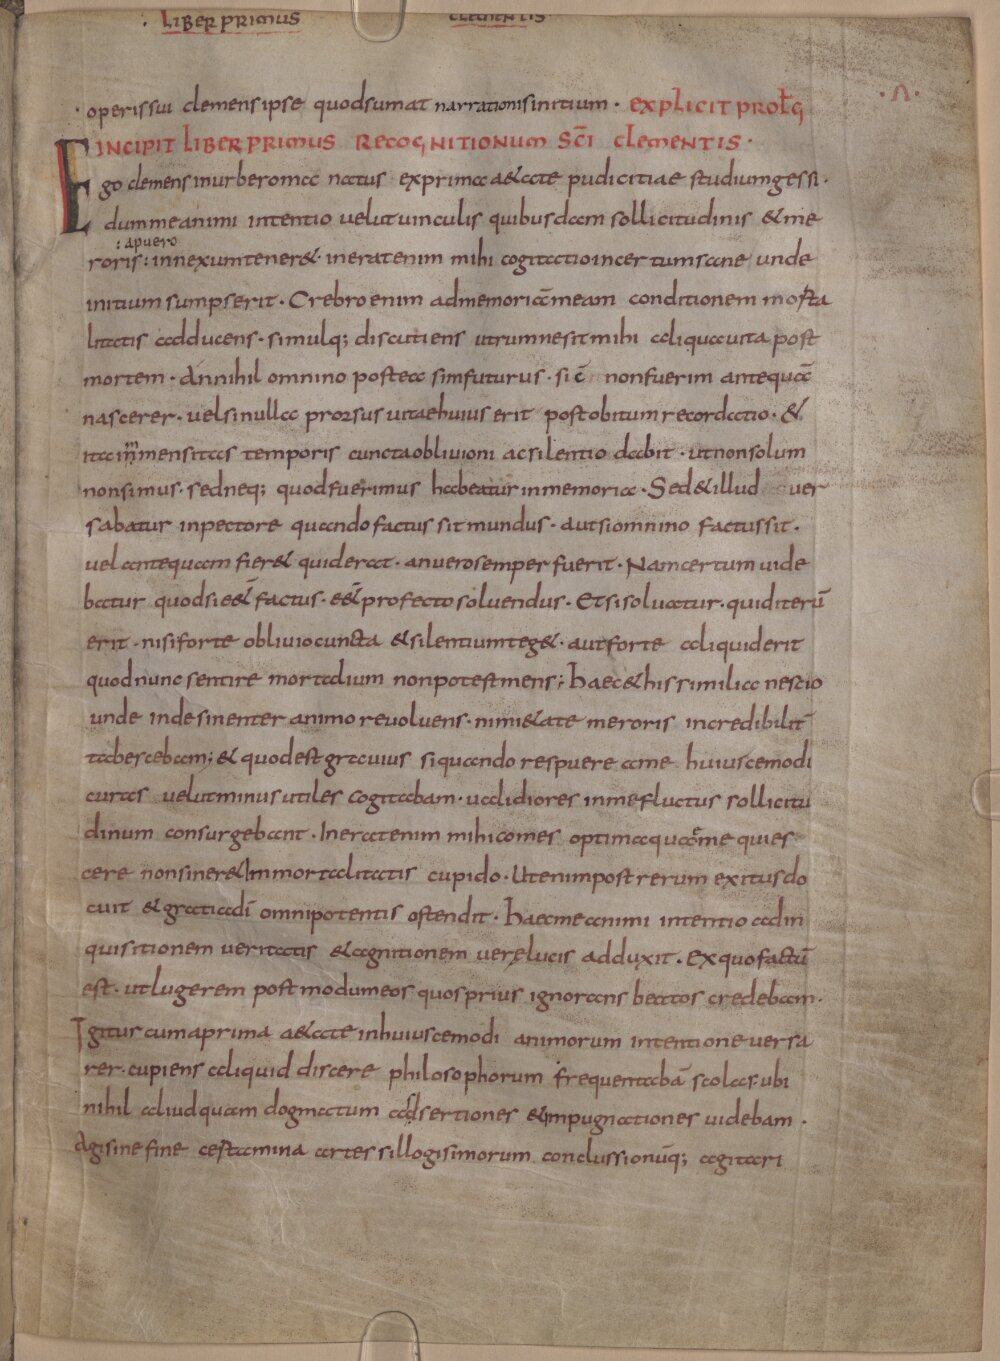 · LIBER PRIMUS CLEMENTIS
· operis sui clemens ipse quod sumat narrationis initium · EXPLICIT PROLG
INCIPIT LIBER PRIMUS RECOGNITIONUM SCI CLEMENTIS · ·Λ·
Ego clemens in urbe roma natus ex prima aetate pudicitiae studium gessi ·
dum me animi intentio velut vinculis quibusdam sollicitudinis & me
: a puero
roris : innexum teneret · inerat enim mihi cogitatio incertum sane unde
initium sumpserit · Crebro enim ad memoriā meam conditionem mosta
litatis adducens · simulq; discutiens utrumne sit mihi aliqua vita post
mortem · An nihil omnino postea sim futurus · si c̄ non fuerim antequā
nascerer · vel si nulla prorsus vitae huius erit post obitum recordatio · &
ita immensitas temporis cuncta oblivioni ac silentio dabit · ut non solum
non simus · sed neq; quod fuerimus habeatur in memoria · Sed & illud ver
sabatur in pectore quando factus sit mundus · aut si omnino factus sit ·
vel antequam fieret quid erat · an vero semper fuerit · Nam certum vide
batur quod si eēt factus · eēt profecto solvendus · Et si solvatur · quid iterū
erit · nisi forte oblivio cuncta & silentium teget · aut forte aliquid erit
quod nunc sentire mortalium non potest mens ; haec & his similia nescio
unde indesinenter animo revolvens · nimietate meroris incredibilit̄
tabescebam ; & quod est gravius si quando respuere a me huiuscemodi
curas velut minus utiles cogitabam · validiores in me fluctus sollicitu
dinum consurgebant · Inerat enim mihi comes optima quae me quies
cere non sineret Immortalitatis cupido · Ut enim post rerum exitus do
cuit & gratia dī omnipotentis ostendit · haec me animi intentio ad in
quisitionem veritatis & agnitionem verę lucis adduxit · Ex quo factū
est · ut lugerem postmodum eos quos prius ignorans beatos credebam ·
Igitur cum a prima aetate in huiuscemodi animorum intentione versa
rer · cupiens aliquid discere philosophorum frequentabā scolas ubi
nihil aliud quam dogmatum adsertiones & impugnationes videbam ·
Agi sine fine certamina artes sillogisimorum conclussionūq; agitari